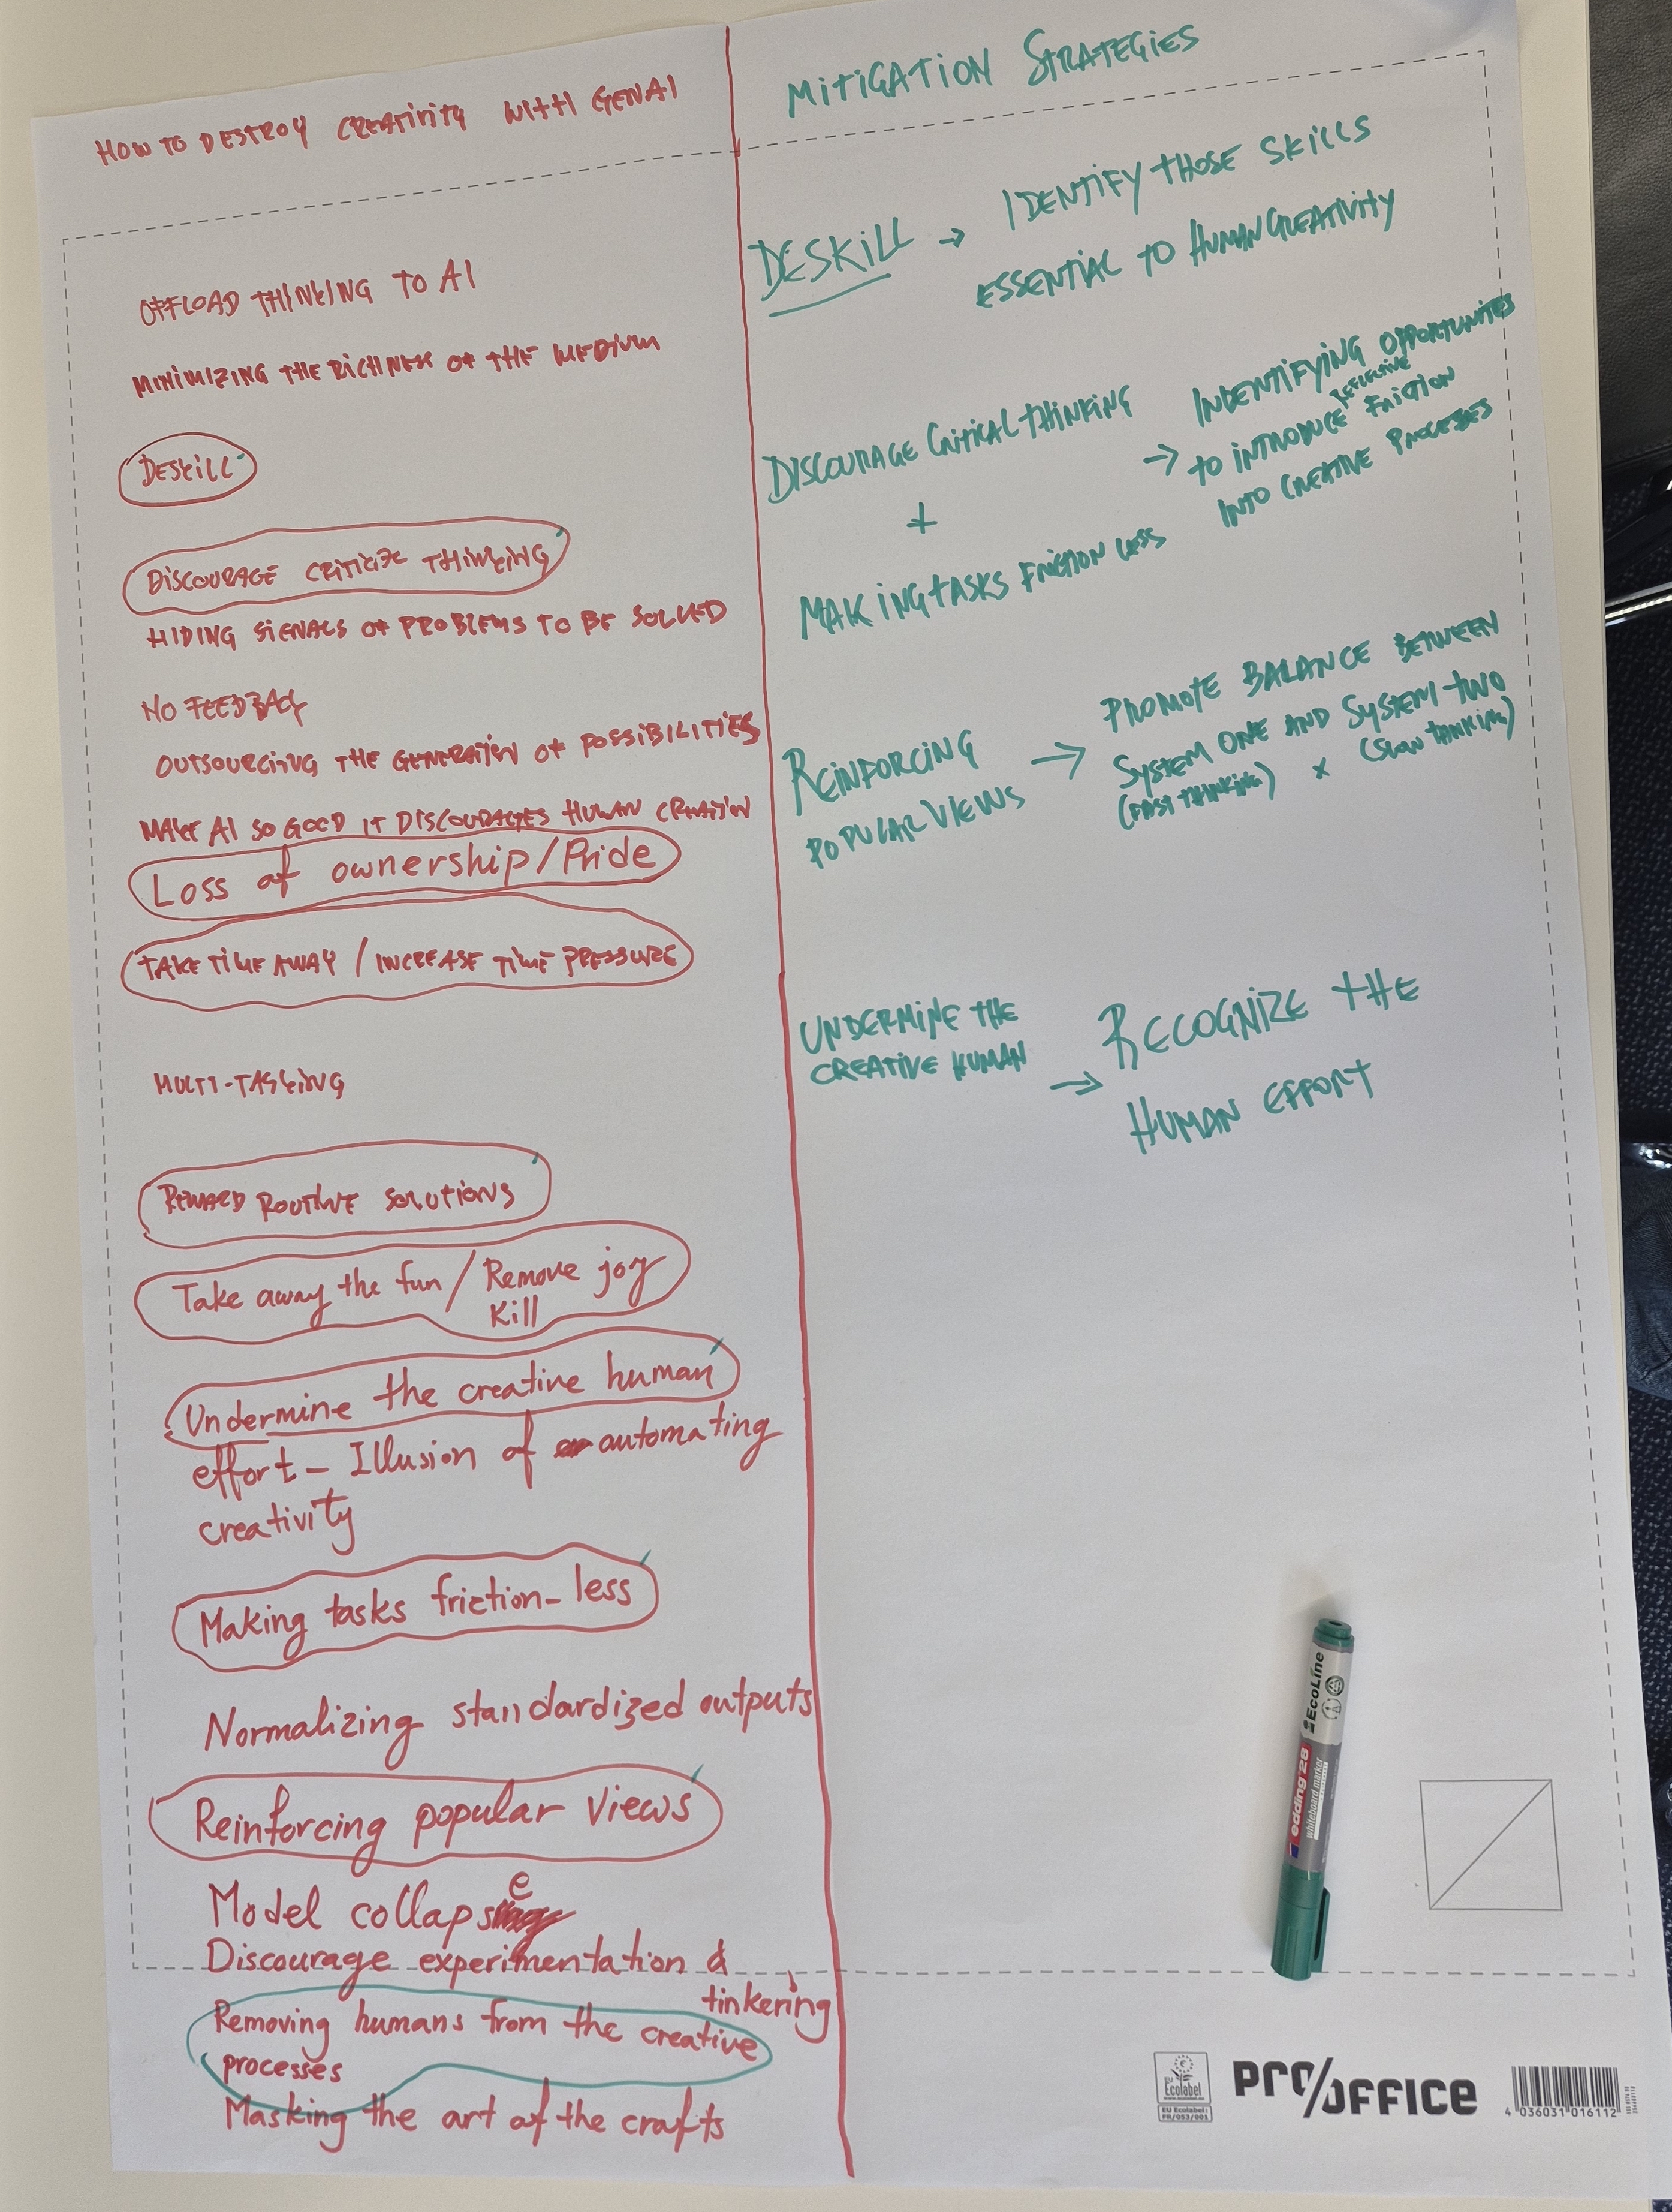 HOW TO DESTROY CREATIVITY WITH GENAI
OFFLOAD THINKING TO AI
MINIMIZING THE RICHNESS OF THE MEDIUM
DESKILL
DISCOURAGE CRITICIZE THINKING
HIDING SIGNALS OF PROBLEMS TO BE SOLVED
NO FEEDBACK
OUTSOURCING THE GENERATION OF POSSIBILITIES
MAKE AI SO GOOD IT DISCOURAGES HUMAN CREATION
Loss of ownership/Pride
TAKE TIME AWAY / INCREASE TIME PRESSURE
MULTI-TASKING
REWARD ROUTINE SOLUTIONS
Take away the fun / Remove joy
Kill
Undermine the creative human
effort - Illusion of automating
creativity
Making tasks friction-less
Normalizing standardized outputs
Reinforcing popular views
Model collapse
Discourage experimentation &
tinkering
Removing humans from the creative
processes
Masking the art of the crafts
MITIGATION STRATEGIES
DESKILL → IDENTIFY THOSE SKILLS
ESSENTIAL TO HUMAN CREATIVITY
DISCOURAGE CRITICAL THINKING
+
MAKING TASKS FRICTION LESS
→ INDENTIFYING OPPORTUNITES
TO INTRODUCE REFLECTIVE FRICTION
INTO CREATIVE PROCESSES
REINFORCING
POPULAR VIEWS
→ PROMOTE BALANCE BETWEEN
SYSTEM ONE AND SYSTEM TWO
(FAST THINKING) x (SLOW THINKING)
UNDERMINE THE
CREATIVE HUMAN
→ RECOGNIZE THE
HUMAN EFFORT
edding 28
whiteboard marker
EcoLine
EU Ecolabel
www.ecolabel.eu
EU Ecolabel:
FR/053/001
PRO/OFFICE
4 036031 016112